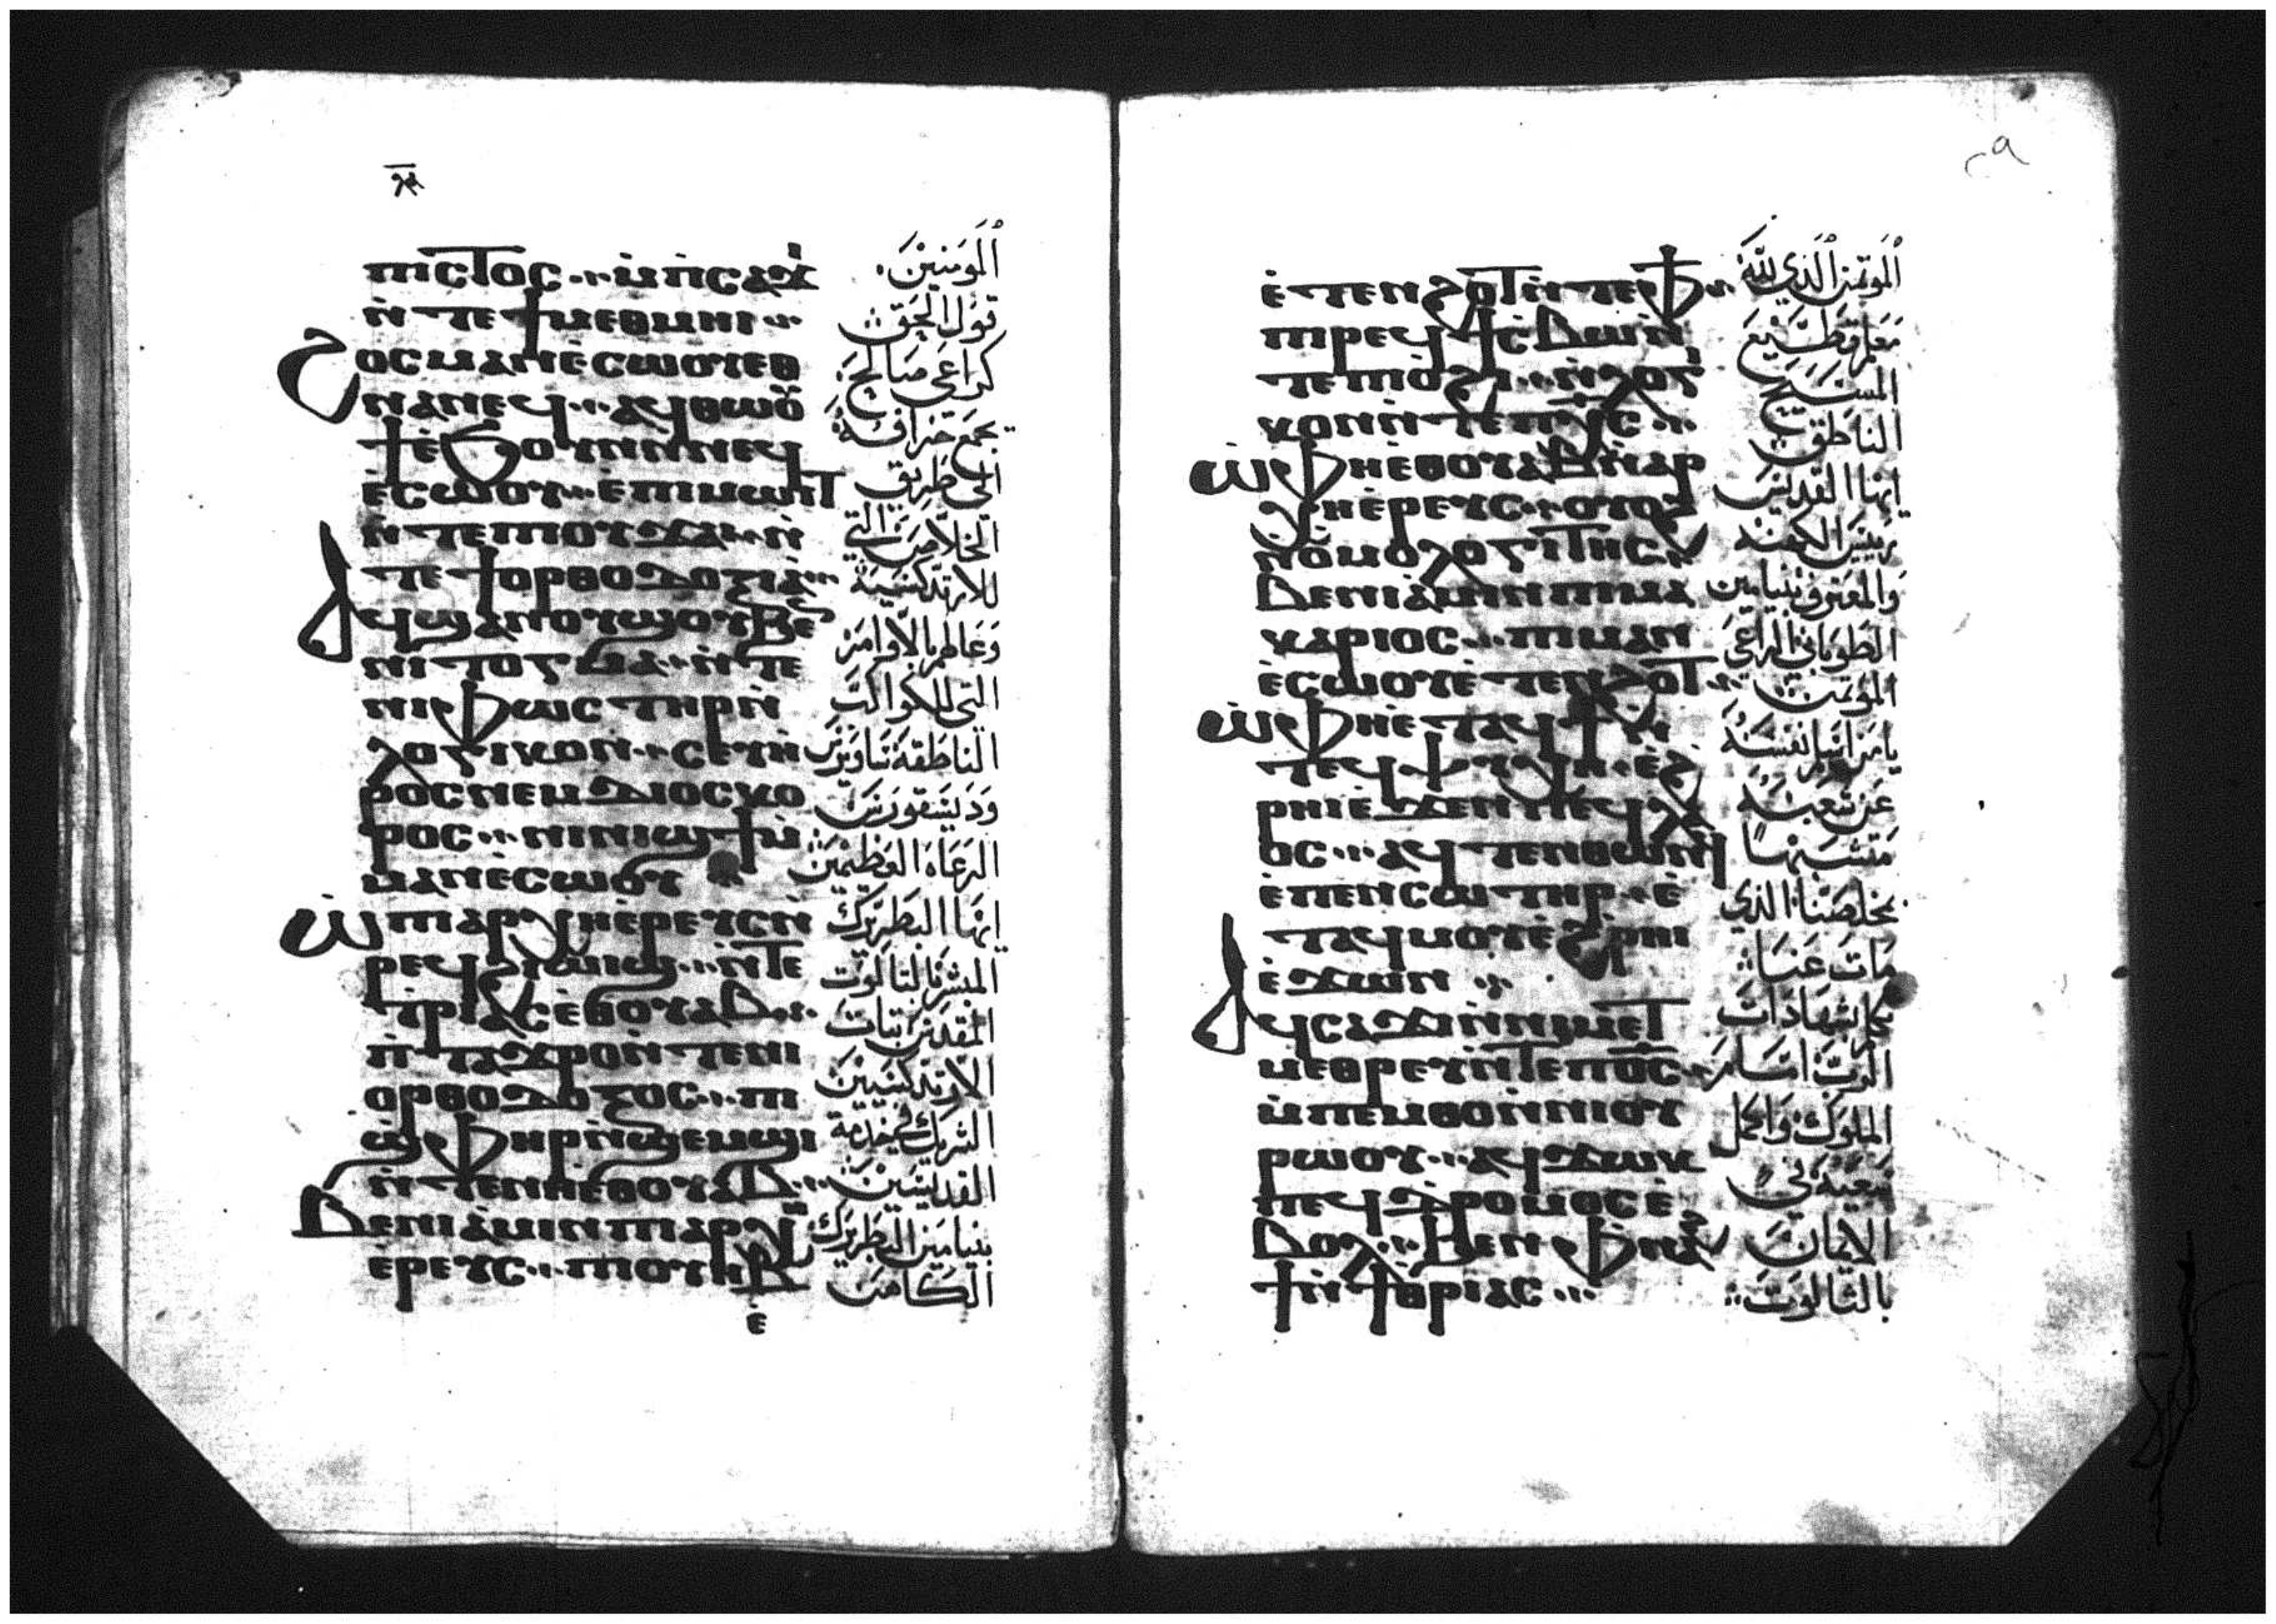 ⲡⲓⲥⲧⲟⲥ ⲙ̀ⲡ̀ⲥⲁϫⲓ
ⲛ̀ⲧⲉϯⲙⲉⲑⲙⲏⲓ
ϩⲟⲥ ⲙⲁⲛⲉ̀ⲥⲱⲟⲩ ⲉⲑ
ⲛⲁⲛⲉϥ ⲁϥⲑⲱⲟⲩ
ϯⲉ̀ϧⲟⲩⲛ ⲛ̀ⲛⲉϥ
ⲉ̀ⲥⲱⲟⲩ ⲉ̀ⲡⲓⲙⲱⲓⲧ
ⲛ̀ⲧⲉⲡⲓⲟⲩϫⲁⲓ ⲛ̀
ⲧⲉϯⲟⲣⲑⲟⲇⲟⲝⲓⲁ
ⲁϥϣⲁⲛⲟⲩϣ ⲟⲩⲃⲉ
ⲛⲓⲇⲟⲅⲙⲁ ⲛ̀ⲧⲉ
ⲛⲓⲫⲱⲥⲧⲏⲣ ⲛ̀
ⲗⲟⲅⲓⲕⲟⲛ ⲥⲉⲩⲏ
ⲣⲟⲥ ⲛⲉⲙ ⲇⲓⲟⲥⲕⲟ
ⲣⲟⲥ ⲛⲓⲛⲓϣϯ ⲙ̀
ⲙⲁⲛⲉ̀ⲥⲱⲟⲩ
ⲱ̀ ⲡⲓⲁⲣⲭⲏⲉ̀ⲣⲉⲩⲥ ⲛ̀
ⲣⲉϥϩⲓⲱⲓϣ ⲛ̀ⲧⲉ
ϯⲧⲣⲓⲁⲥ ⲉ̀ⲑⲟⲩⲁⲃ
ⲡ̀ⲧⲁϫⲣⲟ ⲛ̀ⲧⲉⲛⲓ
ⲟⲣⲑⲟⲇⲟⲝⲟⲥ ⲡⲓ
ϣ̀ⲫⲏⲣ ⲛ̀ϣⲉⲙϣⲓ
ⲛ̀ⲧⲉⲛⲏⲉⲑⲟⲩⲁⲃ
ⲃⲉⲛⲓⲁⲙⲓⲛ ⲡⲓⲁⲣⲭⲏ
ⲉ̀ⲣⲉⲩⲥ ⲡⲓⲟⲩⲏⲃ
ⲉ̀
المومنين
قول الحق
كراعى صالح
يجمع خرافه
الى طريق
الخلاص التي
للارتدكسية
وعالم بالاوامر
التي للكواكب
الناطقة ساويرس
وديسقورس
الرعاه العظيمين
ايها البطريرك
المبشر بالتالوت
المقدس تبات
الارتدكسيين
الشريك في خدمة
القديسين
بنيامين البطريرك
الكاهن
٢٩
ⲉ̀ⲧⲉⲛϩⲟⲧ ⲛ̀ⲧⲉⲫϯ
ⲡⲓⲣⲉϥϯⲥ̀ⲃⲱ ⲛ̀
ⲧⲉⲡⲓⲟϩⲓ ⲛ̀ⲗⲟⲅ
ⲕⲟⲛ ⲛ̀ⲧⲉⲡⲭ̅ⲥ̅
ⲱ̀ ⲫⲏⲉ̀ⲑⲟⲩⲁⲃ ⲛ̀ⲁⲣ
ⲭⲏⲉ̀ⲣⲉⲩⲥ ⲟⲩⲟϩ
ⲛ̀ⲟ̀ⲙⲟⲗⲟⲅⲓⲧⲏⲥ
ⲃⲉⲛⲓⲁⲙⲓⲛ ⲡⲓⲙⲁ
ⲕⲁⲣⲓⲟⲥ ⲡⲓⲙⲁⲛ
ⲉ̀ⲥⲱⲟⲩ ⲉ̀ⲧⲉⲛϩⲟⲧ
ⲱ̀ ⲫⲏⲉ̀ⲧⲁϥϯ ⲛ̀
ⲧⲉϥⲯⲩⲭⲏ ⲉ̀ϩ̀
ⲣⲏⲓ ⲉ̀ϫⲉⲛ ⲡⲉϥⲗⲁ
ⲟⲥ ⲁϥⲧⲉⲛⲑⲱⲛϥ
ⲉ̀ⲡⲉⲛⲥⲱⲧⲏⲣ ⲉ̀
ⲧⲁϥⲙⲟⲩ ⲉ̀ϩ̀ⲣⲏⲓ
ⲉ̀ϫⲱⲛ
ⲁϥⲥⲁϫⲓ ⲛ̀ⲛⲓⲙⲉⲧ
ⲙⲉⲑⲣⲉⲩ ⲛ̀ⲧⲉⲡⲟ̅ⲥ̅
ⲙ̀ⲡⲉⲙⲑⲟ ⲛ̀ⲛⲓⲟⲩ
ⲣⲱⲟⲩ ⲁϥϫⲱⲕ
ⲡⲉϥⲇⲣⲟⲙⲟⲥ ⲉ̀
ⲃⲟⲗ ϧⲉⲛ ⲫⲛⲁϩ
ϯ ⲛ̀ϯⲑⲣⲓⲁⲥ
الموتمن الذي لله
معلم قطيع
المسيح
الناطق
ايها القديس
رييس الكهنه
والمعترف بنيامين
الطوباني الراعي
الموتمن
يا من اسلم نفسه
عن شعبه
متشبها
بمخلصنا الذي
مات عنا
تكلم بشهادات
الرب امام
الملوك واكمل
سعيه في
الايمان
بالثالوت